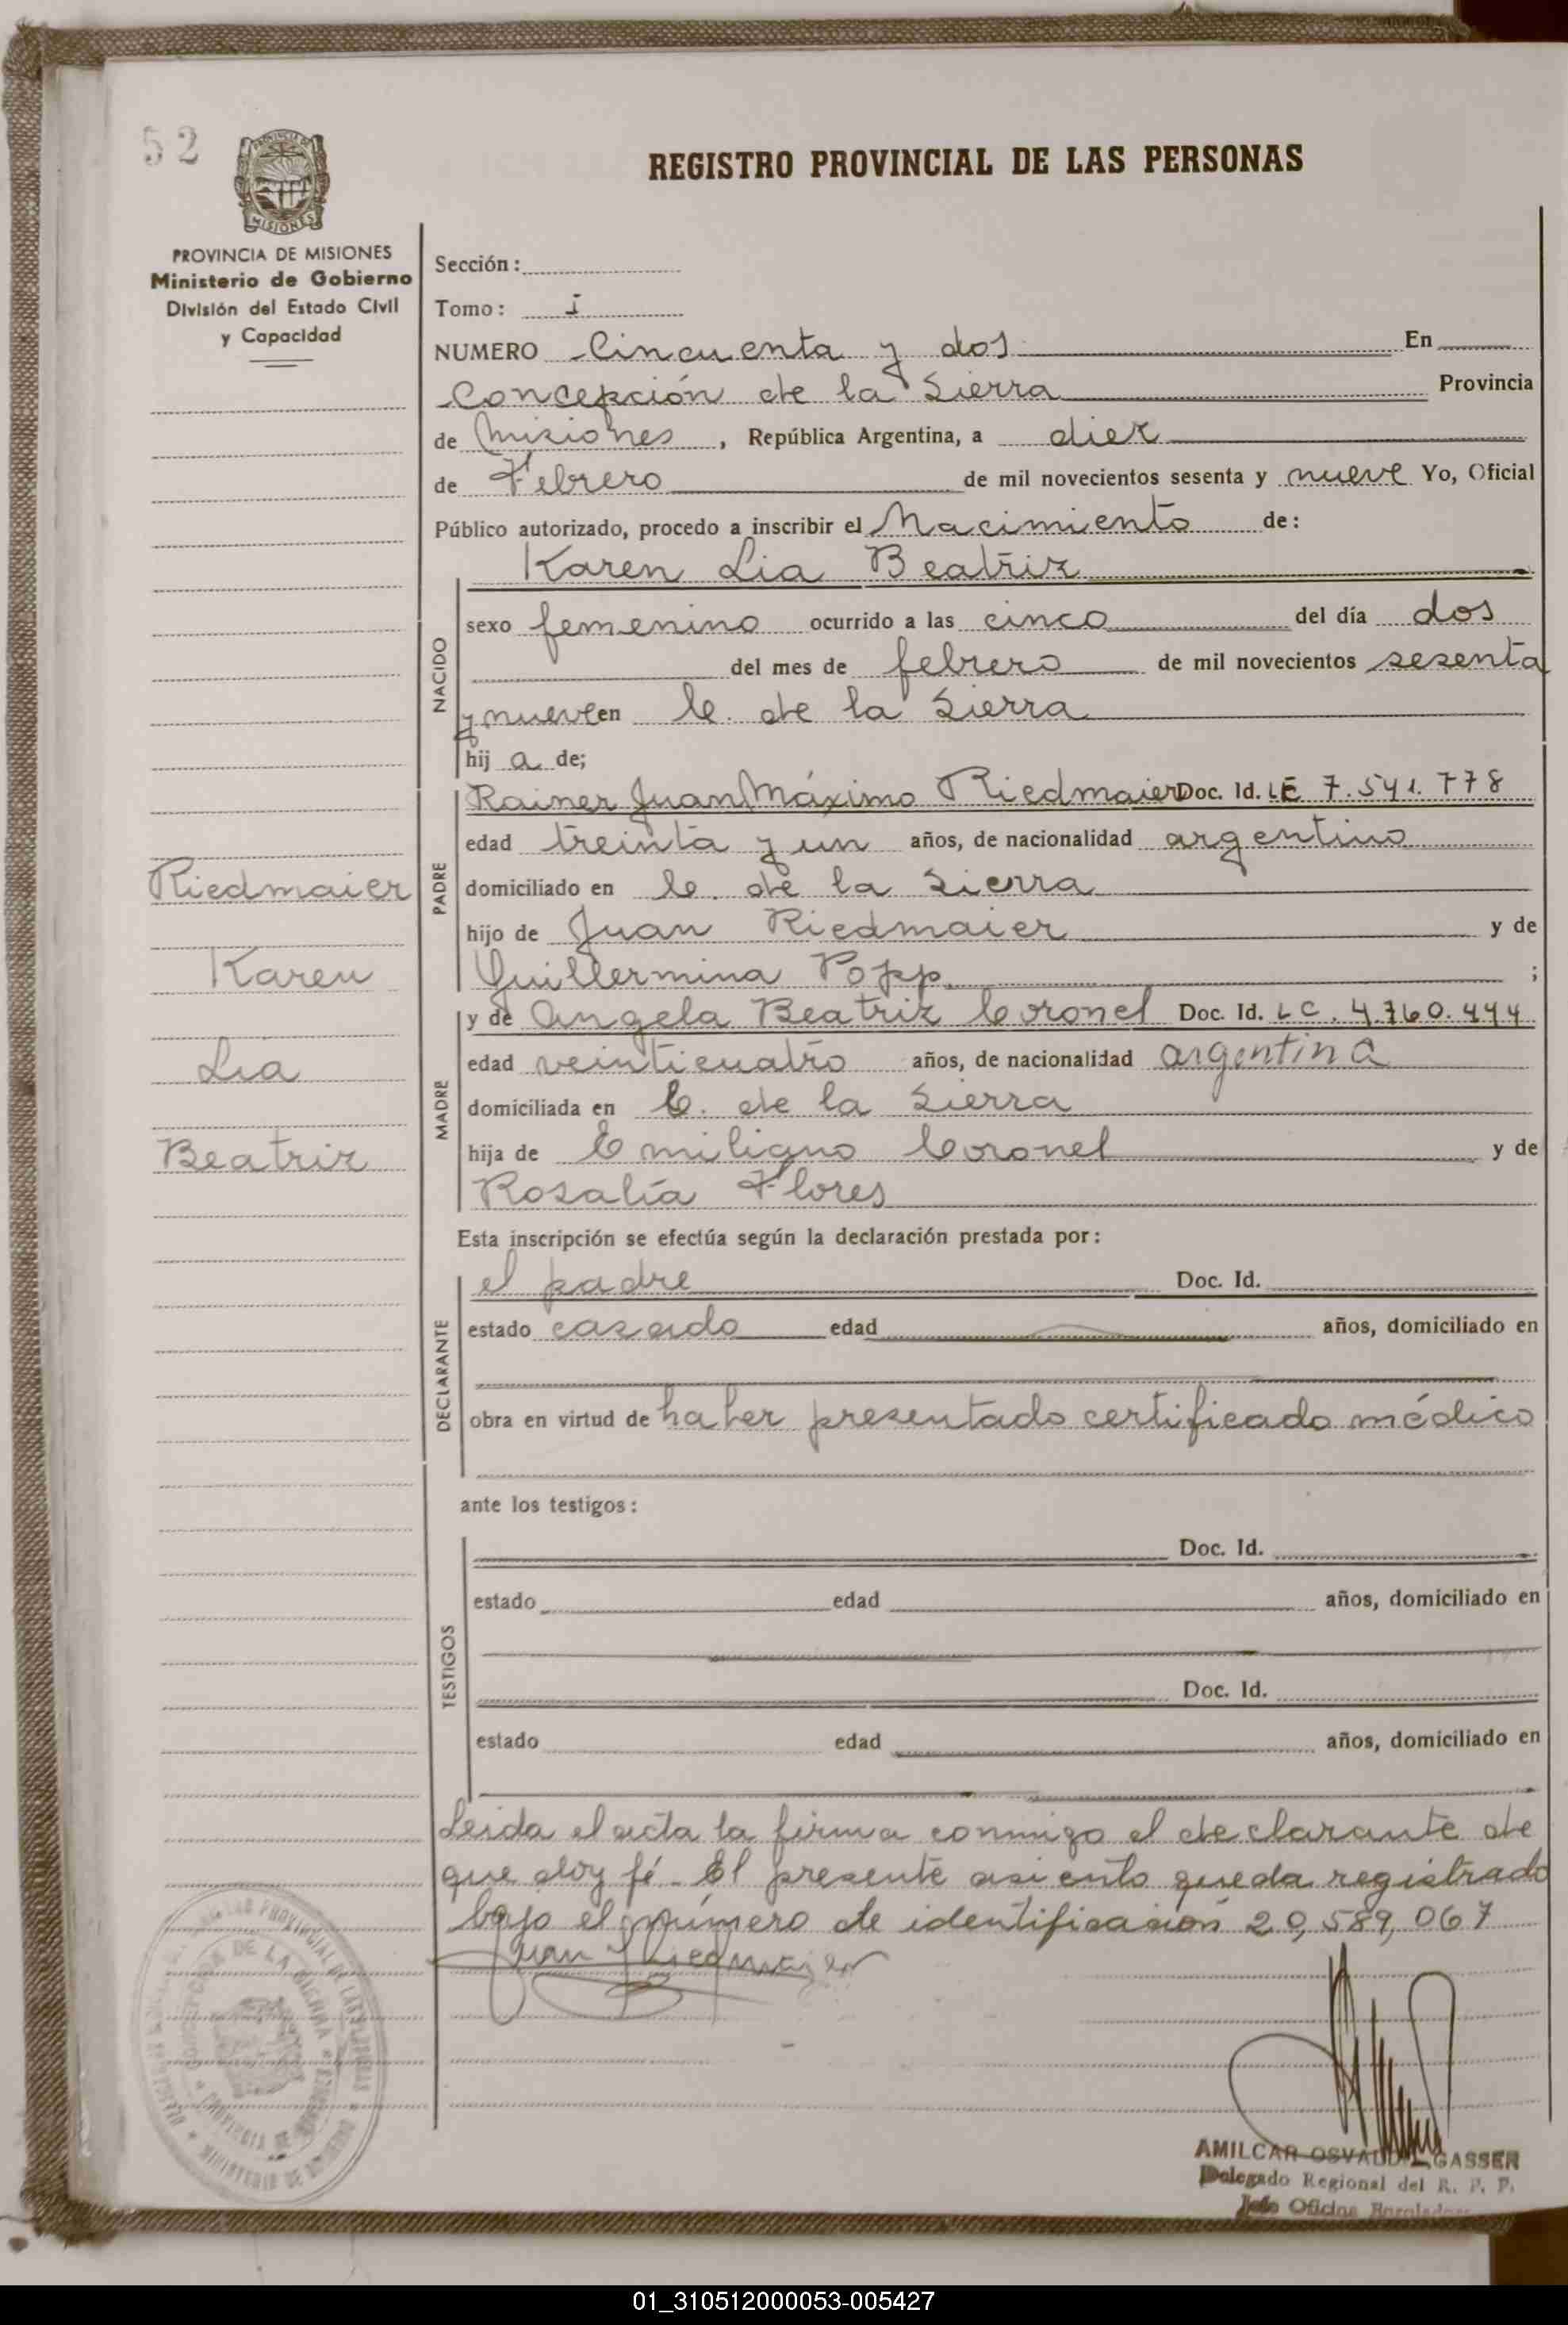 52
PROVINCIA DE
MISIONES
PROVINCIA DE MISIONES
Ministerio de Gobierno
División del Estado Civil
y Capacidad
REGISTRO PROVINCIAL DE LAS PERSONAS
Sección:
Tomo: I
NUMERO Cincuenta y dos En
Concepción de la Sierra Provincia
de Misiones, República Argentina, a diez
de Febrero de mil novecientos sesenta y nueve Yo, Oficial
Público autorizado, procedo a inscribir el Nacimiento de:
Karen Lia Beatriz
NACIDO
sexo femenino ocurrido a las cinco del día dos
del mes de febrero de mil novecientos sesenta
y nueve en C. de la Sierra
hij a de;
PADRE
Rainer Juan Máximo Riedmaier Doc. Id. LE 7.541.778
edad treinta y un años, de nacionalidad argentino
domiciliado en C. de la Sierra
hijo de Juan Riedmaier y de
Guillermina Popp ;
MADRE
y de Angela Beatriz Coronel Doc. Id. LC. 4.760.444
edad veinticuatro años, de nacionalidad argentina
domiciliada en C. de la Sierra
hija de Emiliano Coronel y de
Rosalía Flores
Riedmaier
Karen
Lia
Beatriz
Esta inscripción se efectúa según la declaración prestada por:
DECLARANTE
el padre Doc. Id.
estado casado edad años, domiciliado en
obra en virtud de haber presentado certificado médico
ante los testigos:
TESTIGOS
Doc. Id.
estado edad años, domiciliado en
Doc. Id.
estado edad años, domiciliado en
Leida el acta la firma conmigo el declarante de
que doy fé. El presente asiento queda registrado
bajo el número de identificación 20,589,067
Juan Riedmaier
AMILCAR OSVALDO GASSER
Delegado Regional del R. P. P.
Jefe Oficina
01_310512000053-005427